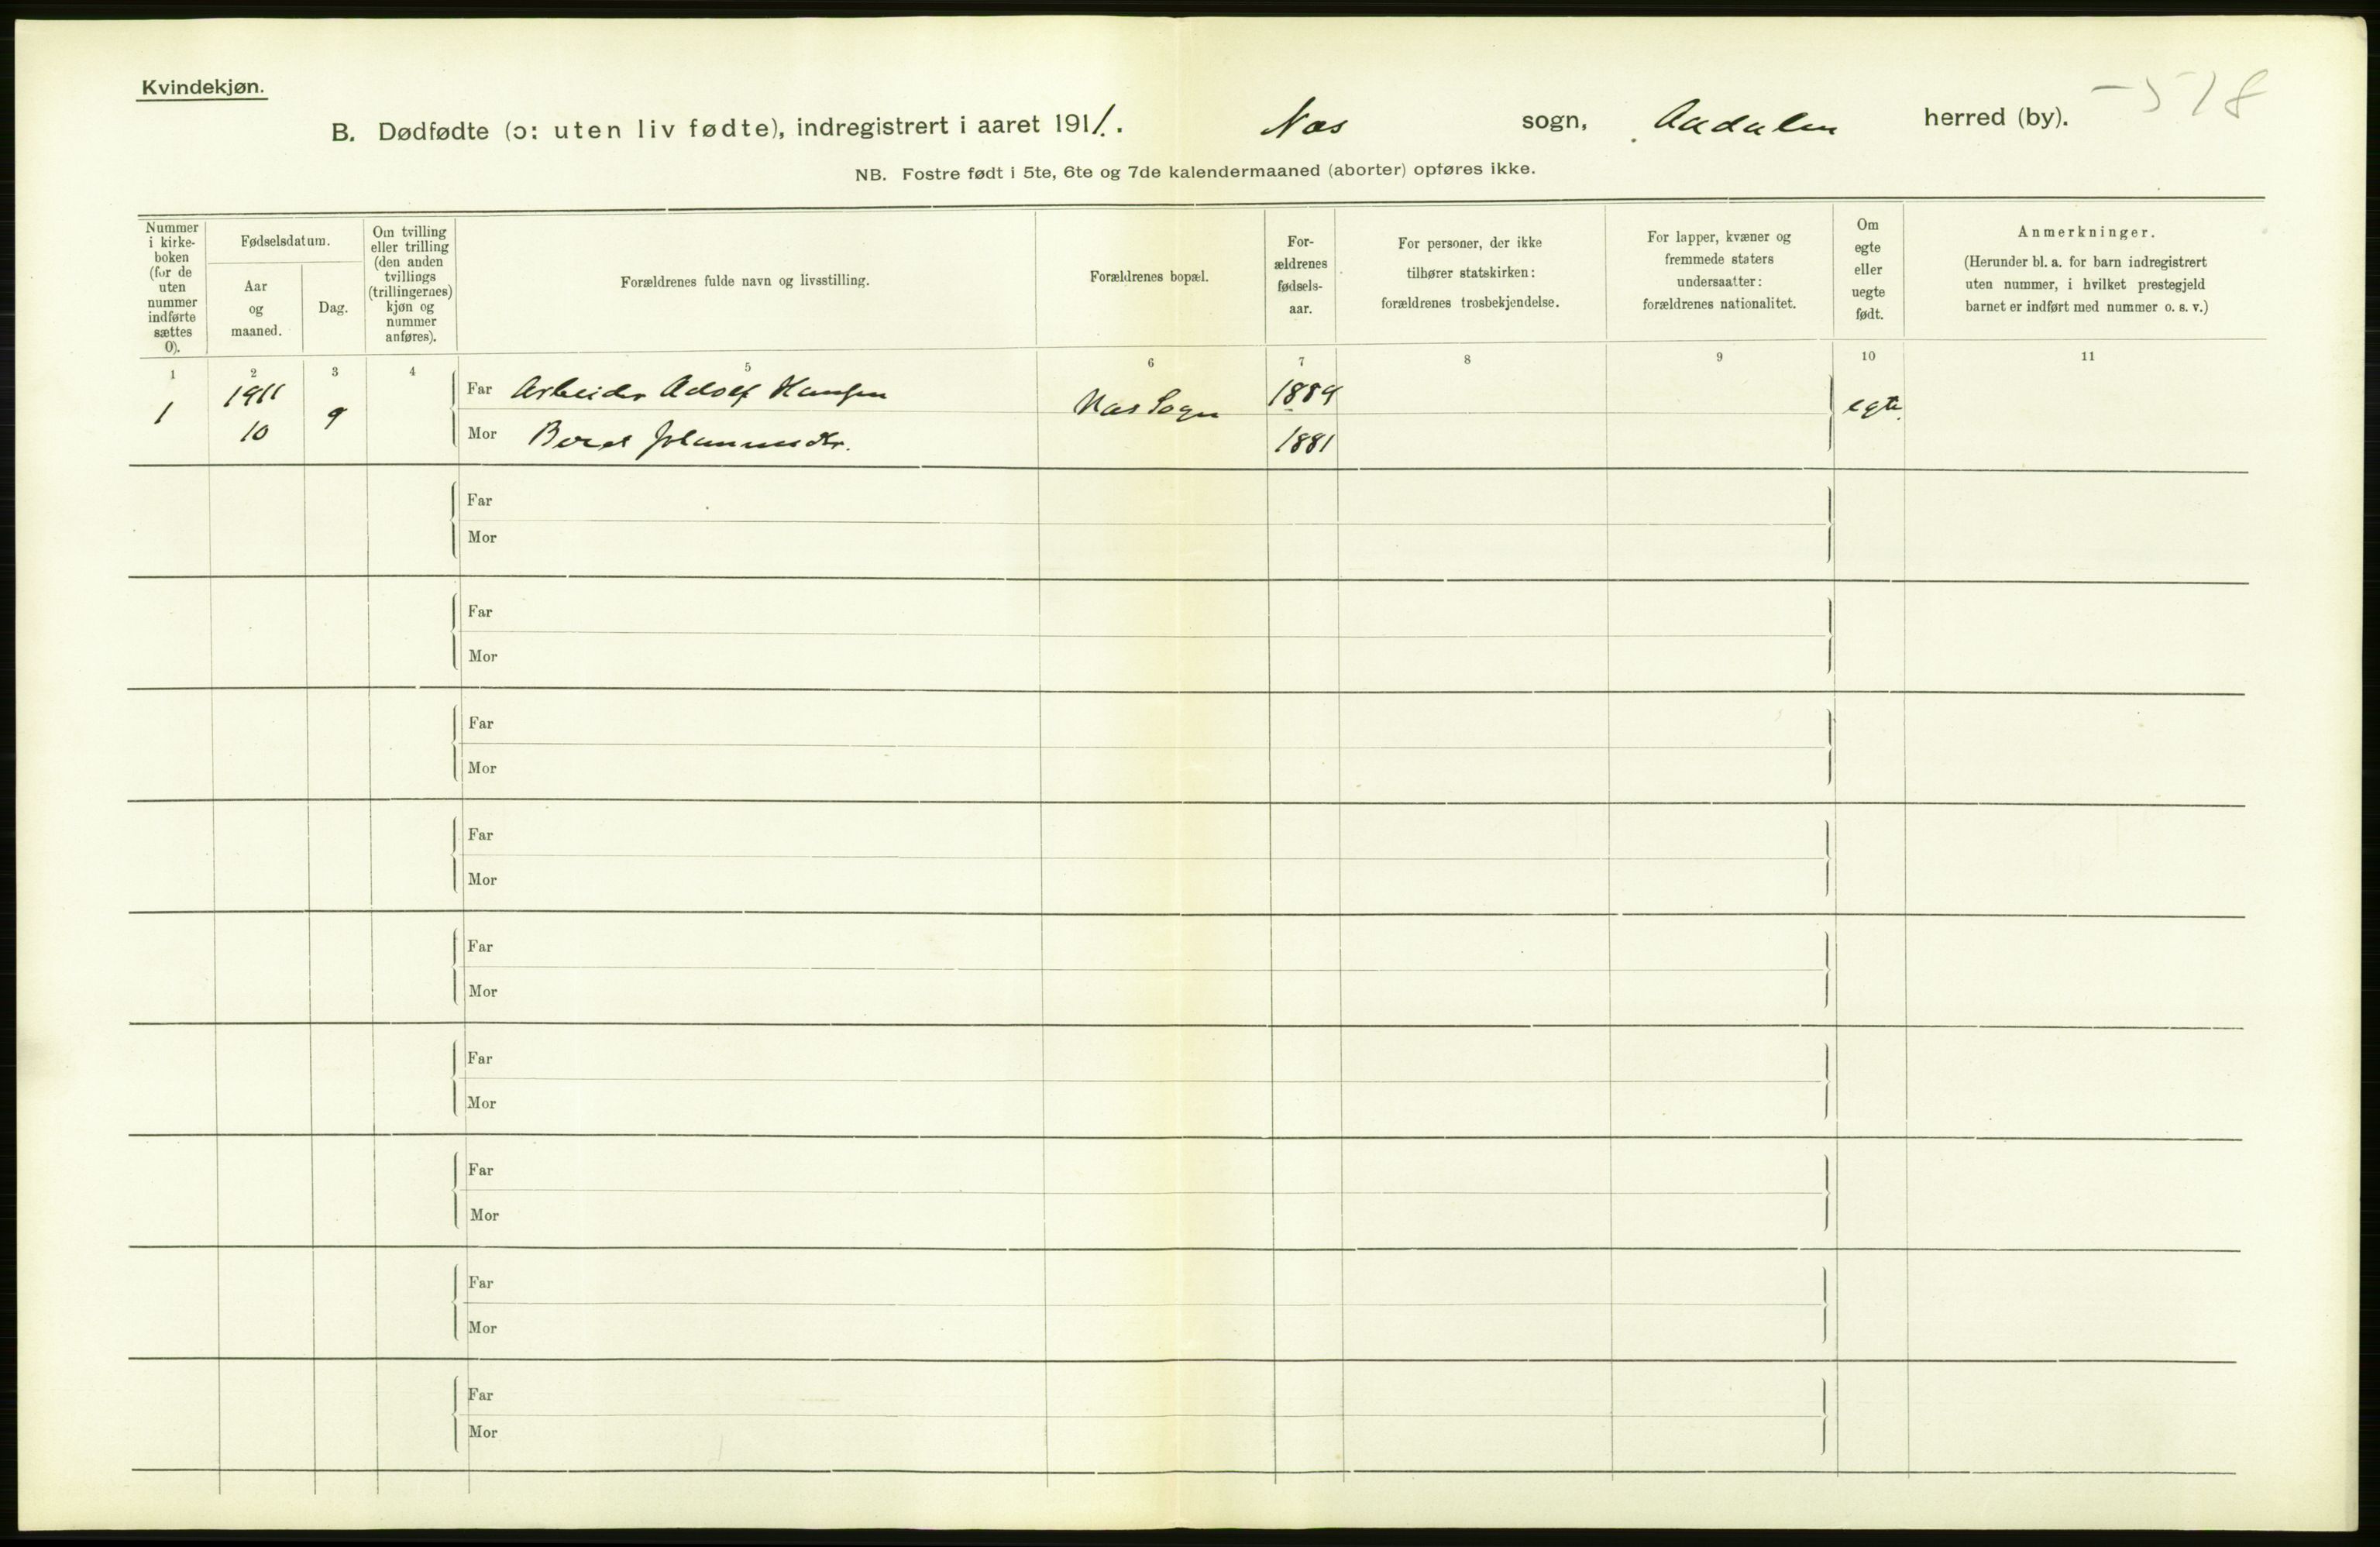 Kvindekjøn.
-518
B. Dødfødte (ɔ: uten liv fødte), indregistrert i aaret 1911. Næs sogn, Aadalen herred (by).
NB. Fostre født i 5te, 6te og 7de kalendermaaned (aborter) opføres ikke.
Nummer
i kirke-
boken
(for de
uten
nummer
indførte
sættes
0).
Fødselsdatum.
Aar
og
maaned.
Dag.
Om tvilling
eller trilling
(den anden
tvillings
(trillingernes)
kjøn og
nummer
anføres).
Forældrenes fulde navn og livsstilling.
Forældrenes bopæl.
For-
ældrenes
fødsels-
aar.
For personer, der ikke
tilhører statskirken:
forældrenes trosbekjendelse.
For lapper, kvæner og
fremmede staters
undersaatter:
forældrenes nationalitet.
Om
egte
eller
uegte
født.
Anmerkninger.
(Herunder bl. a. for barn indregistrert
uten nummer, i hvilket prestegjeld
barnet er indført med nummer o. s. v.)
1 2 3 4 5 6 7 8 9 10 11
1 1911 9 Far Arbeider Adolf Hansen Næs Sogn 1884 egte
10 Mor Beret Johannesdtr. 1881
Far
Mor
Far
Mor
Far
Mor
Far
Mor
Far
Mor
Far
Mor
Far
Mor
Far
Mor
Far
Mor